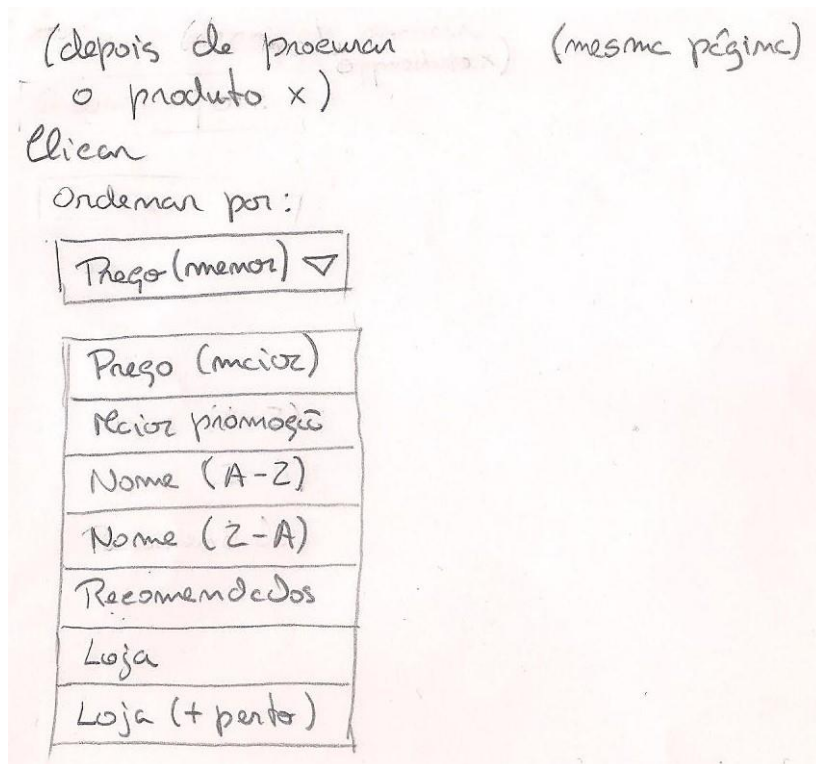 (depois de procurar (mesma página)
o produto x)
Clicar
Ordenar por:
Preço (menor) ▽
Preço (maior)
Maior promoção
Nome (A-Z)
Nome (Z-A)
Recomendados
Loja
Loja (+ perto)